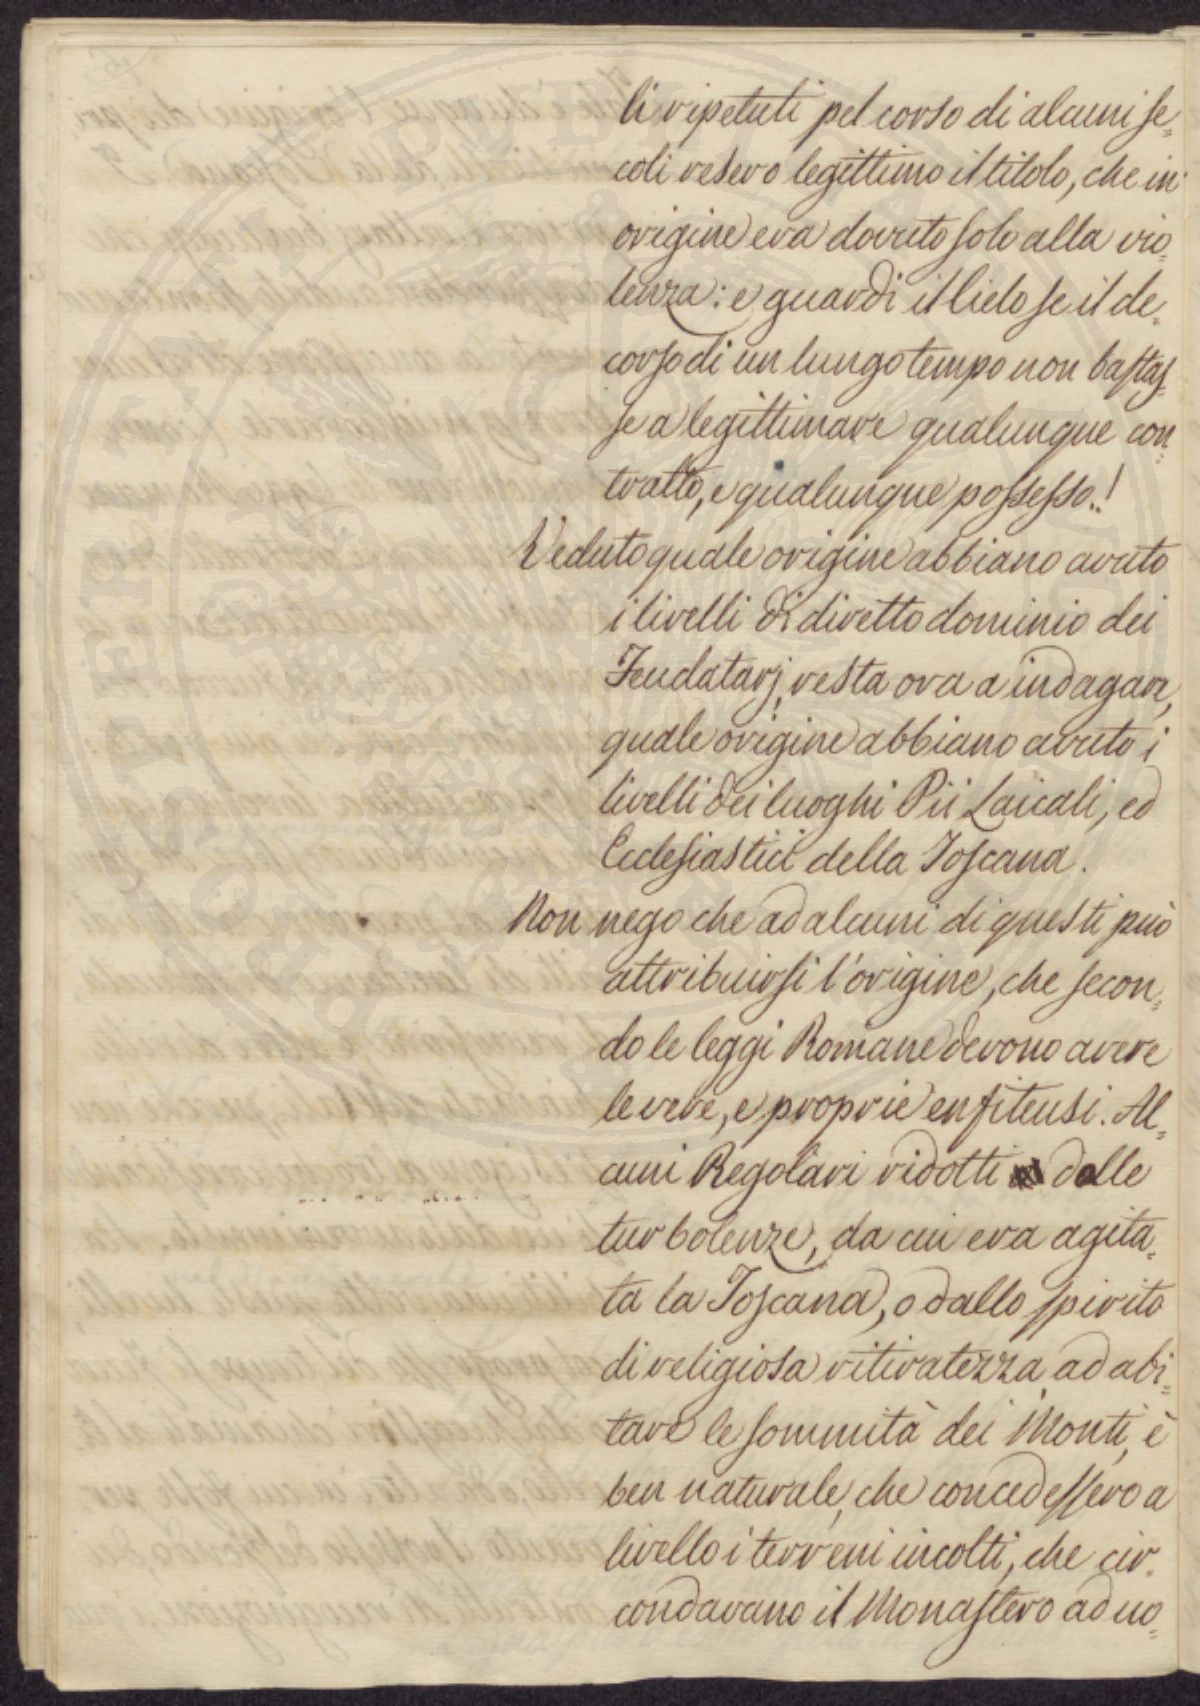 li ripetuti pel corso di alcuni se=
coli resero legittimo il titolo, che in
origine era dovuto solo alla vio=
lenza: e guardi il Cielo se il de=
corso di un lungo tempo non bastas=
se a legittimare qualunque con=
tratto, e qualunque possesso.!
Veduto quale origine abbiano avuto
i livelli di diretto dominio dei
Feudatarj, resta ora a indagare,
quale origine abbiano avuto i
livelli dei luoghi Pii Laicali, ed
Ecclesiastici della Toscana.
Non nego che ad alcuni di questi può
attribuirsi l'origine, che secon=
do le leggi Romane devono avere
le vere, e proprie enfiteusi. Al=
cuni Regolari ridotti dalle
turbolenze, da cui era agita=
ta la Toscana, o dallo spirito
di religiosa ritiratezza ad abi=
tare le sommità dei Monti, è
ben naturale, che concedessero a
livello i terreni incolti, che cir=
condavano il Monastero ad uo=
PROSPERITATI PUBLICAE